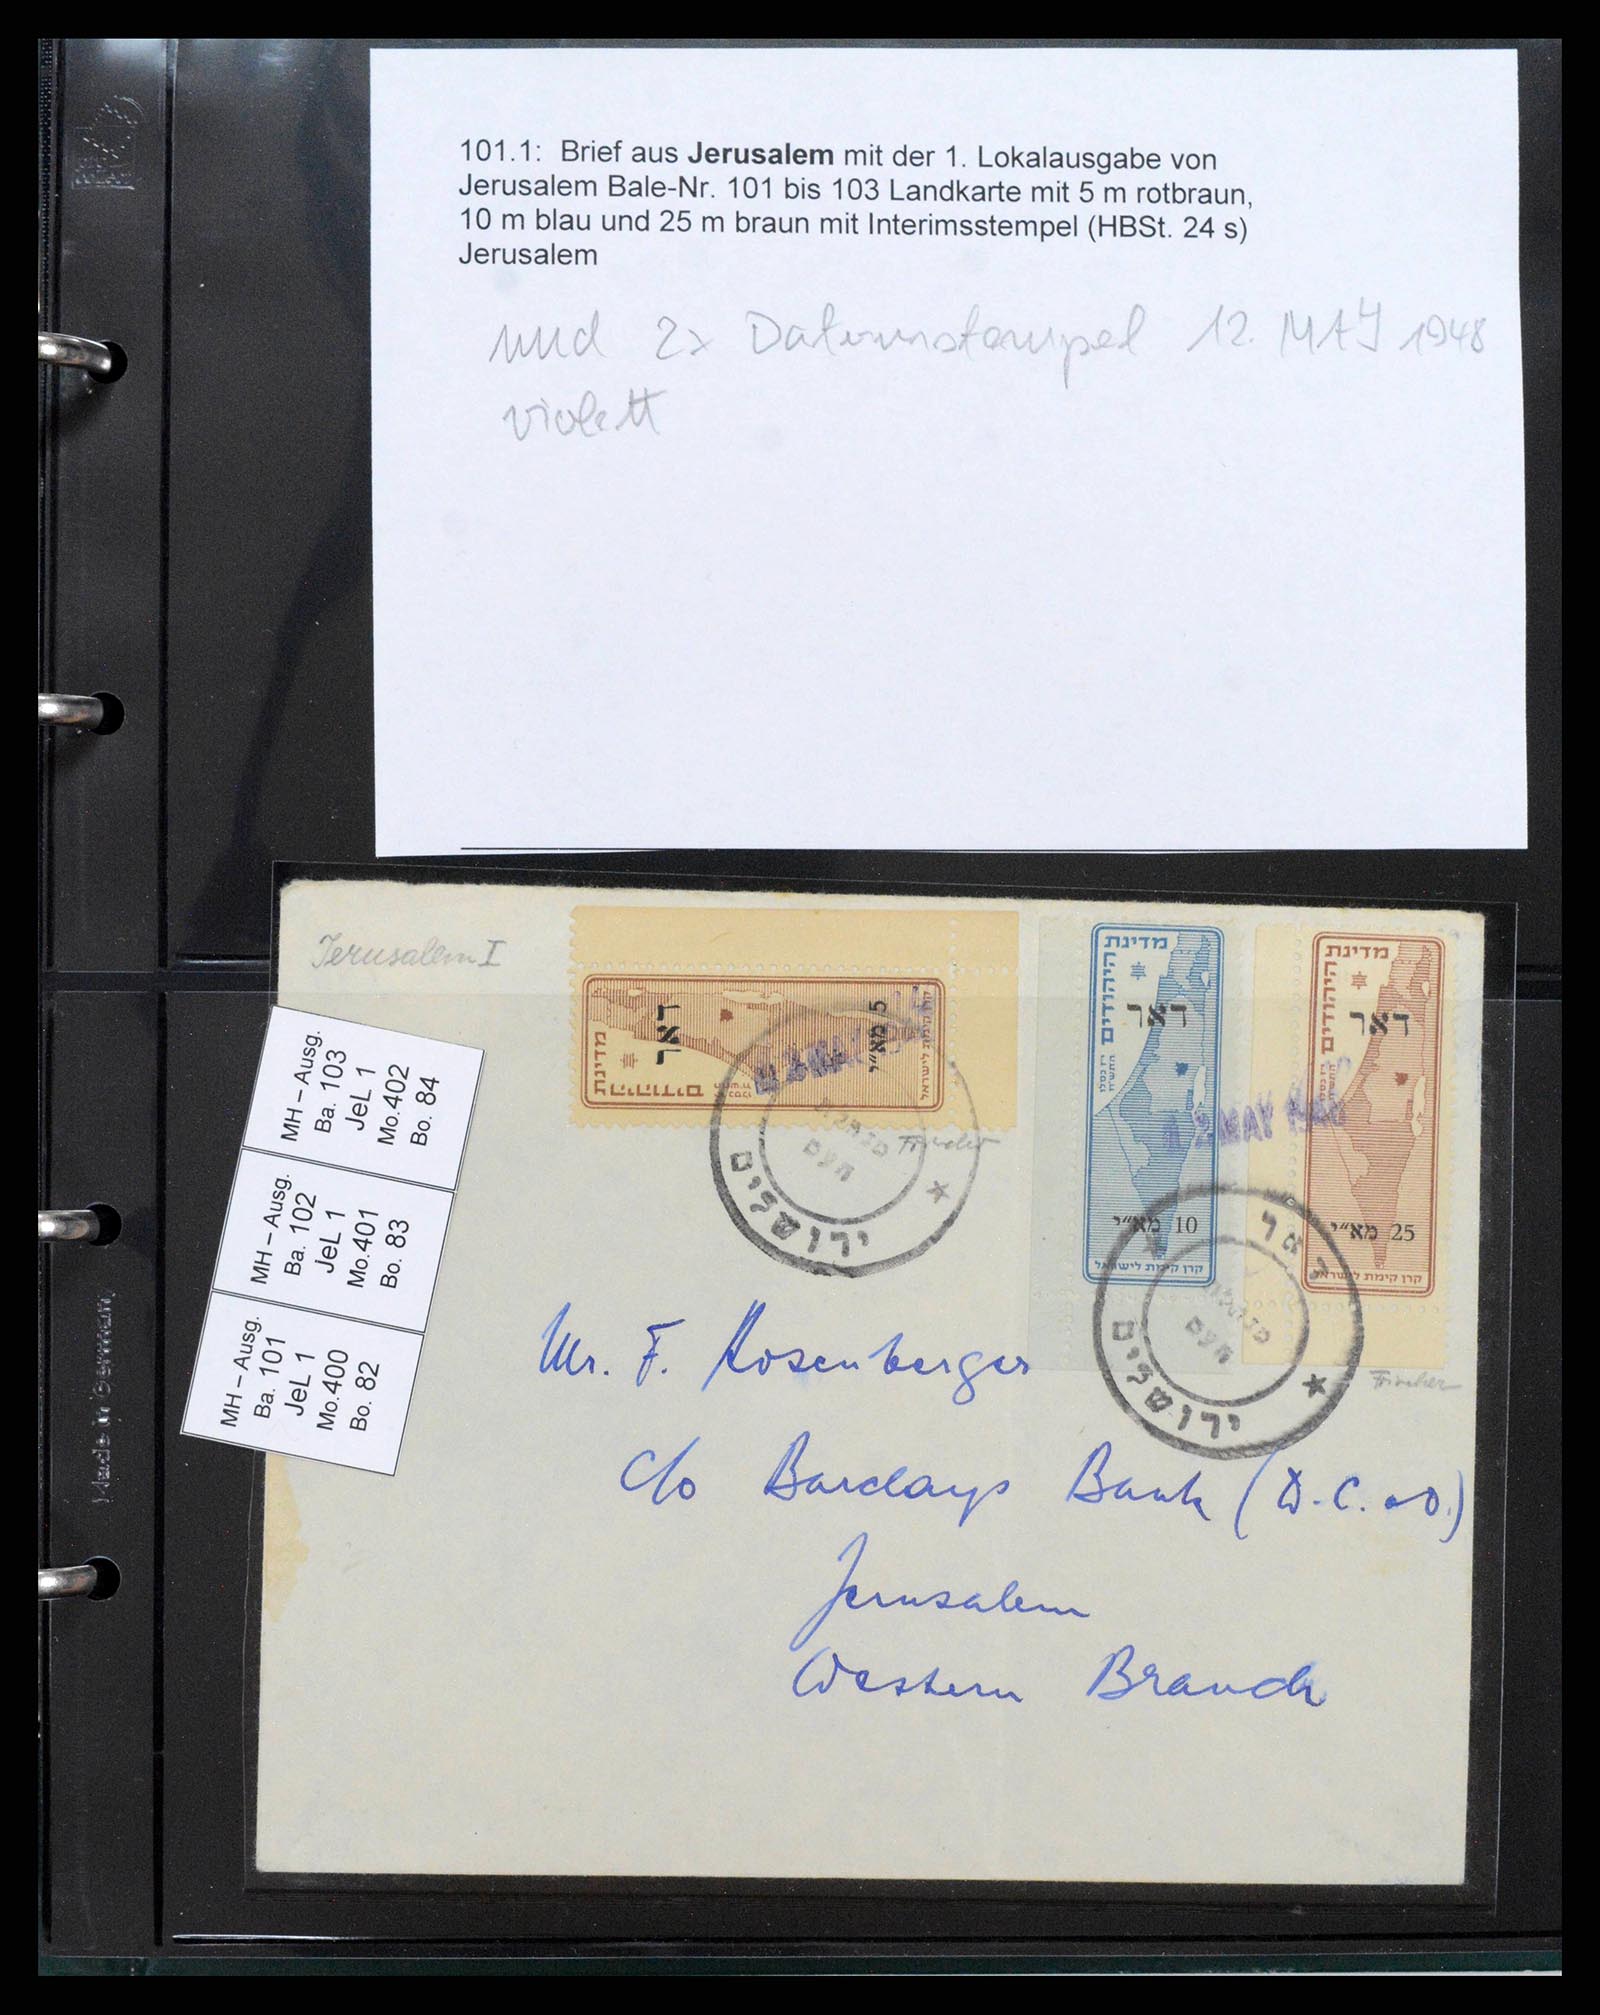 101.1: Brief aus Jerusalem mit der 1. Lokalausgabe von
Jerusalem Bale-Nr. 101 bis 103 Landkarte mit 5 m rotbraun,
10 m blau und 25 m braun mit Interimsstempel (HBSt. 24 s)
Jerusalem
und 2x Datumstempel 12. MAY 1948
violett
Jerusalem I
MH – Ausg.
Ba. 103
JeL 1
Mo.402
Bo. 84
MH – Ausg.
Ba. 102
JeL 1
Mo.401
Bo. 83
MH – Ausg.
Ba. 101
JeL 1
Mo.400
Bo. 82
מדינת
היהודים
דאר
5 מא״י
קרן קימת לישראל
מדינת
היהודים
דאר
10 מא״י
קרן קימת לישראל
מדינת
היהודים
דאר
25 מא״י
קרן קימת לישראל
MAY
2 MAY
ירושלים
העם
דאר
ירושלים
מנהלת
העם
Fischer
Fischer
Mr. F. Rosenberger
c/o Barclays Bank (D.C.&O.)
Jerusalem
Western Branch
Made in German